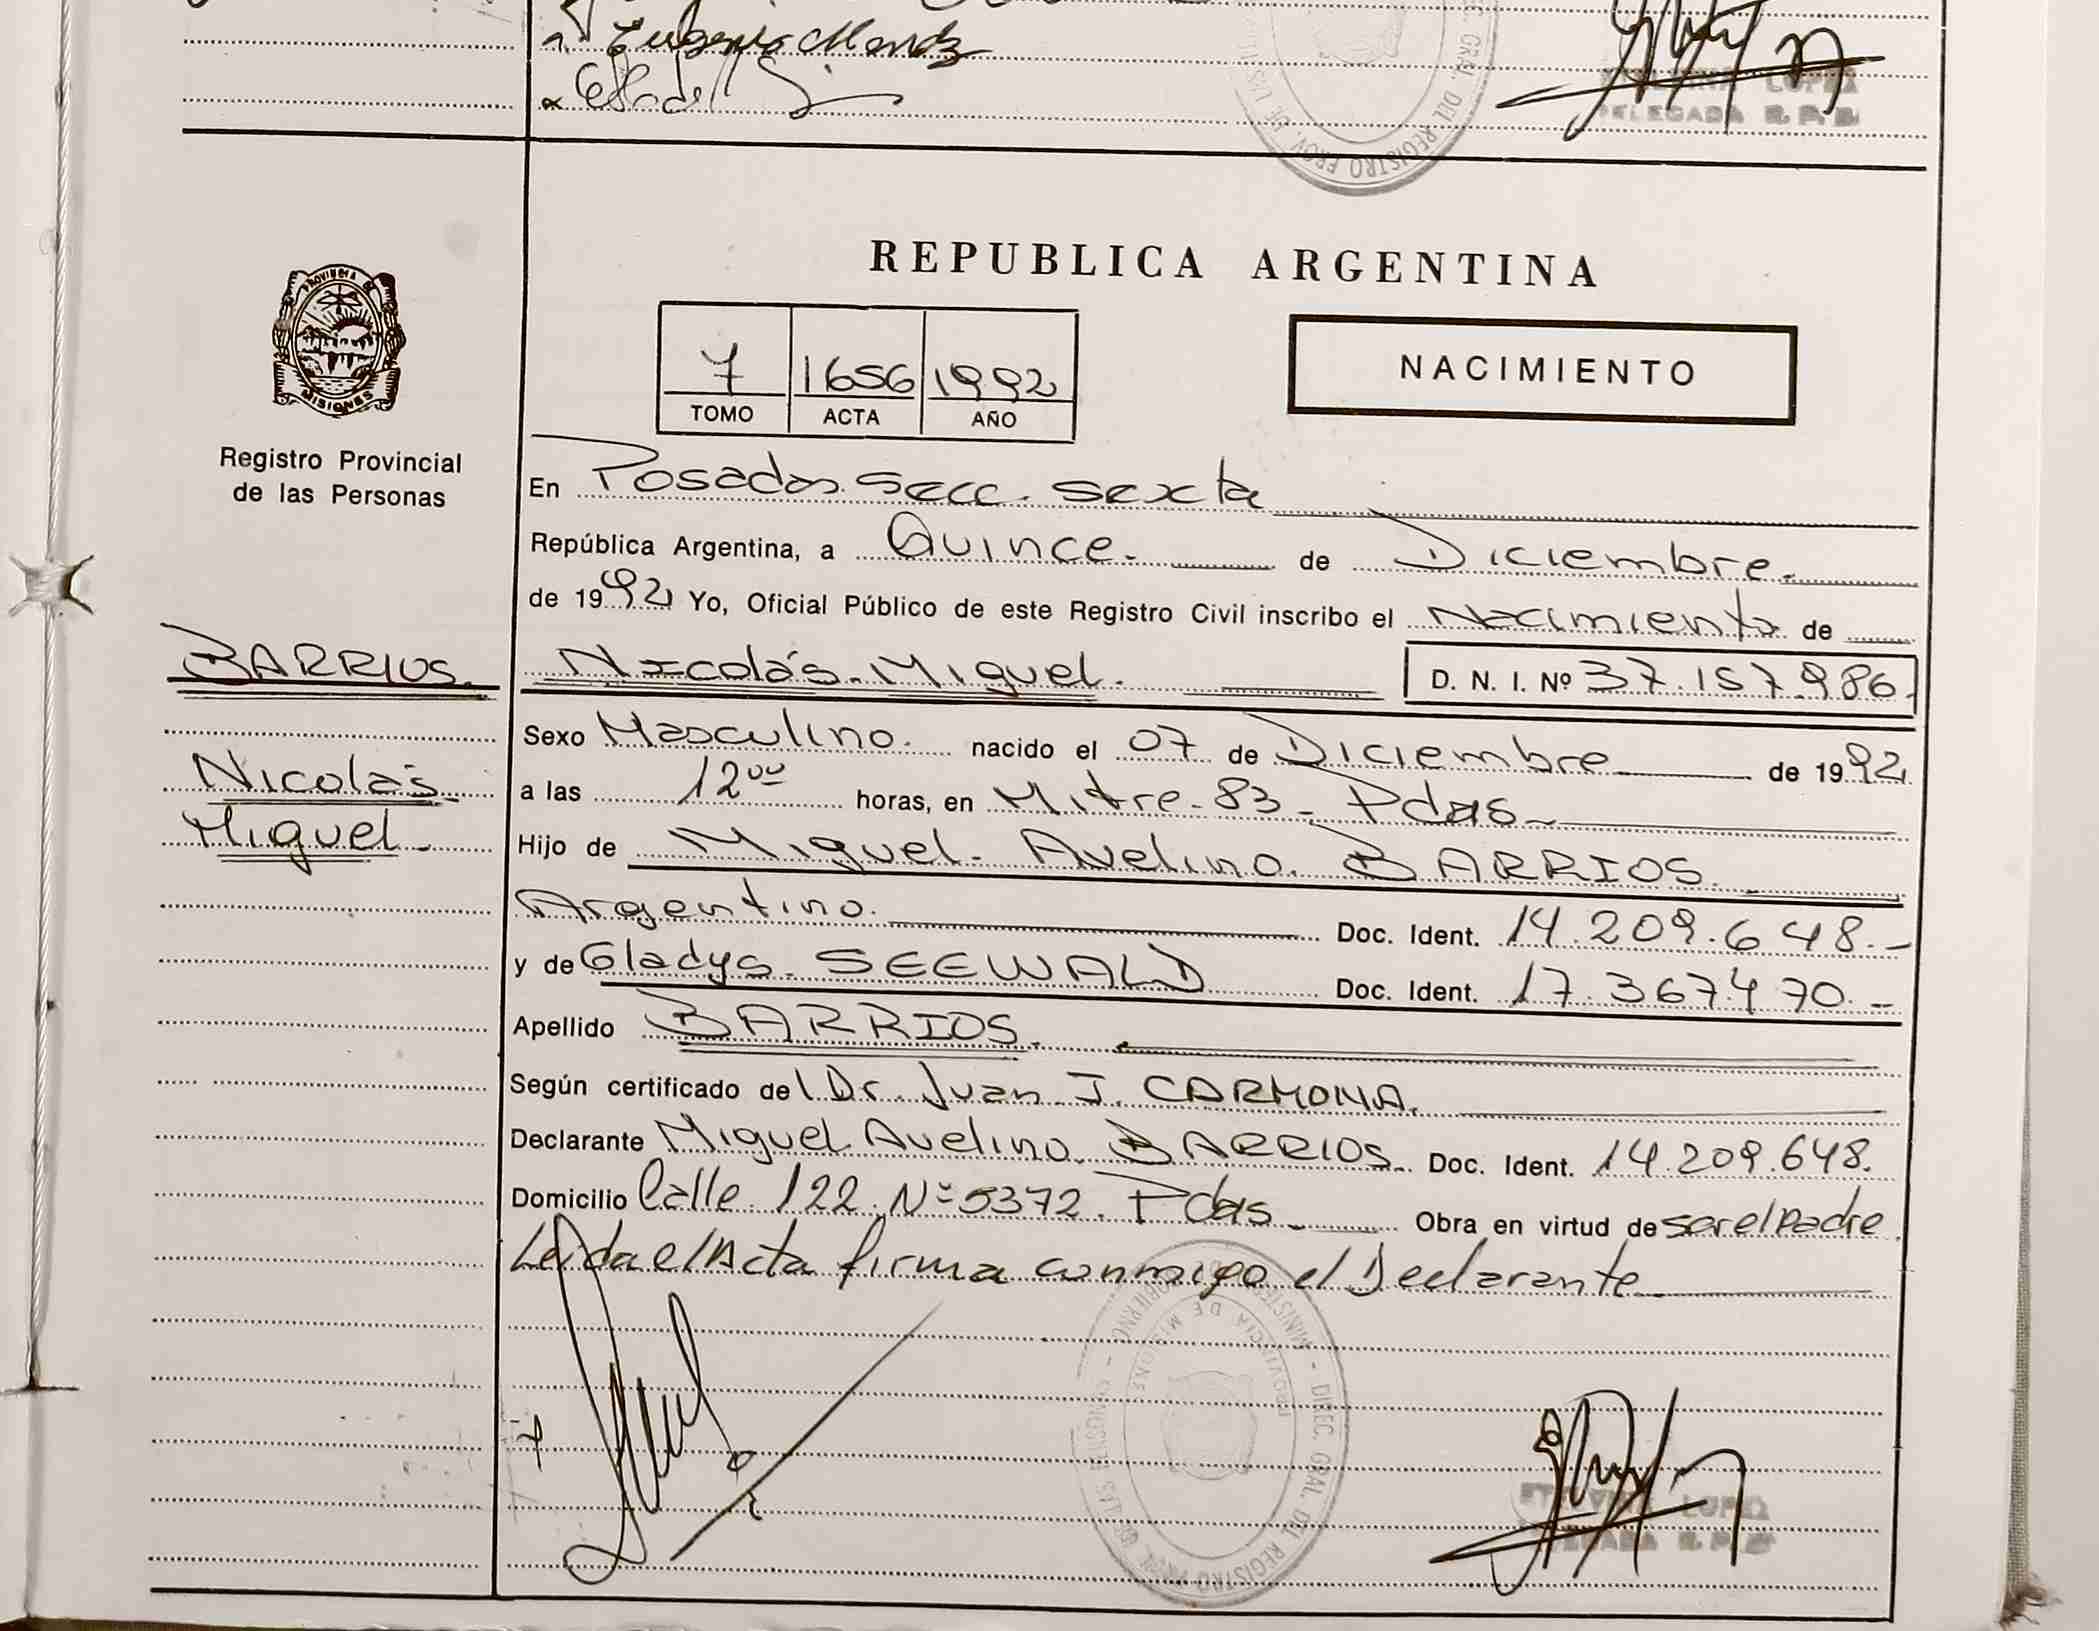 Eugenio Mendez
LOPEZ
DELEGADA R. P. P.
DEL REGISTRO PROV. DE LAS
REPUBLICA ARGENTINA
PROVINCIA DE
MISIONES
Registro Provincial
de las Personas
7 1656 1992
TOMO ACTA AÑO
NACIMIENTO
En Posadas Secc. Sexta
República Argentina, a Quince. de Diciembre.
de 1992 Yo, Oficial Público de este Registro Civil inscribo el Nacimiento de
BARRIOS.
Nicolás
Miguel
Nicolás Miguel. D. N. I. Nº 37.157.986.
Sexo Masculino. nacido el 07 de Diciembre de 1992
a las 12⁰⁰ horas, en Mitre 83 - Pdas
Hijo de Miguel Avelino BARRIOS.
Argentino. Doc. Ident. 14.209.648.-
y de Gladys SEEWALD Doc. Ident. 17.367.470.-
Apellido BARRIOS.
Según certificado del Dr. Juan J. CARMONA.
Declarante Miguel Avelino BARRIOS. Doc. Ident. 14.209.648.
Domicilio Calle 122 Nº 5372. Pdas Obra en virtud de ser el padre
Leida el Acta firma conmigo el Declarante
MINISTERIO DE GOBIERNO - DIREC. GRAL. DEL REGISTRO PROV. DE LAS PERSONAS
PROVINCIA DE MISIONES
LOPEZ